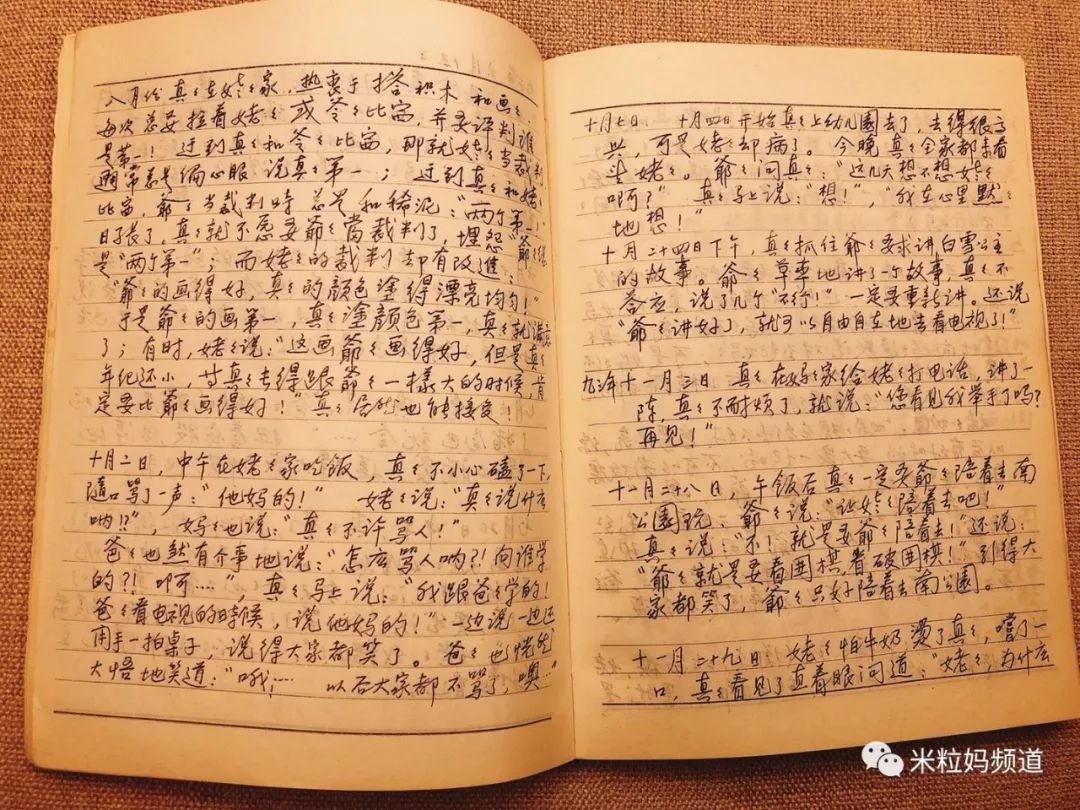 八月份真々在姥々家,热衷于搭积木和画々,
每次总要拉着姥々或爷々比富,并要评判谁
是第一!过到真々和爷々比富,那就姥々当裁判
通常总是偏心眼说真々第一;过到真々和姥々
比富,爺々当裁判時总是和稀泥:"两个第一!"
日子長了,真々就不愿要爺々當裁判了,埋怨"爺々
是"两个第一";而姥々的裁判却有改進:
"爺々的画得好,真々的顏色塗得漂亮均匀!"
于是爺々的画第一,真々塗顏色第一,真々就
了;有时,姥々说:"这画爺々画得好,但是真々
年纪还小,等真々长得跟爺々一樣大的时候,肯
定要比爺々画得好!"真々居然也能接受!
十月二日,中午在姥々家吃飯,真々不小心磕了一下,
隨口骂了一声:"他妈的!" 姥々说:"真々说什么
呐!?",妈々也说:"真々不许骂人!"
爸々也煞有介事地说:"怎么骂人呐?!向谁学
的?!啊…",真々马上说:"我跟爸々学的!
爸々看电视的時候,说他妈的!"一边说一边还
用手一拍桌子,说得大家都笑了。爸々也恍然
大悟地笑道:"哦,… 以后大家都不骂了,噢…"
十月七日. 十月四日开始真々上幼儿園去了,去得很高
兴,可是姥々却病了。今晚真々全家都来看
望姥々。爺々问真々:"这几天想不想姥々
啊?" 真々马上说:"想!","我在心里默々
地想!"
十月二十四日下午,真々抓住爺々要求讲白雪公主
的故事。爺々草率地讲了一个故事,真々不
答应,说了几个"不行!"一定要重新讲。还说
"爺々讲好了,就可以自由自在地去看电视了!"
九三年十一月三日 真々在妈々家给姥々打电话,讲了一
陈,真々不耐烦了,就说:"您看见我举手了吗?
再见!"
十一月二十八日,午饭后真々一定要爺々陪着去南
公園玩,爺々说:"让姥々陪着去吧!"
真々说:"不!就是要爺々陪着去!"还说:
"爺々就是要看囲棋看破囲棋!"引得大
家都笑了,爺々只好陪着去南公園。
十一月二十九日 姥々怕牛奶燙了真々,嚐了一
口,真々看见了直着眼问道:"姥々,为什么
米粒妈频道